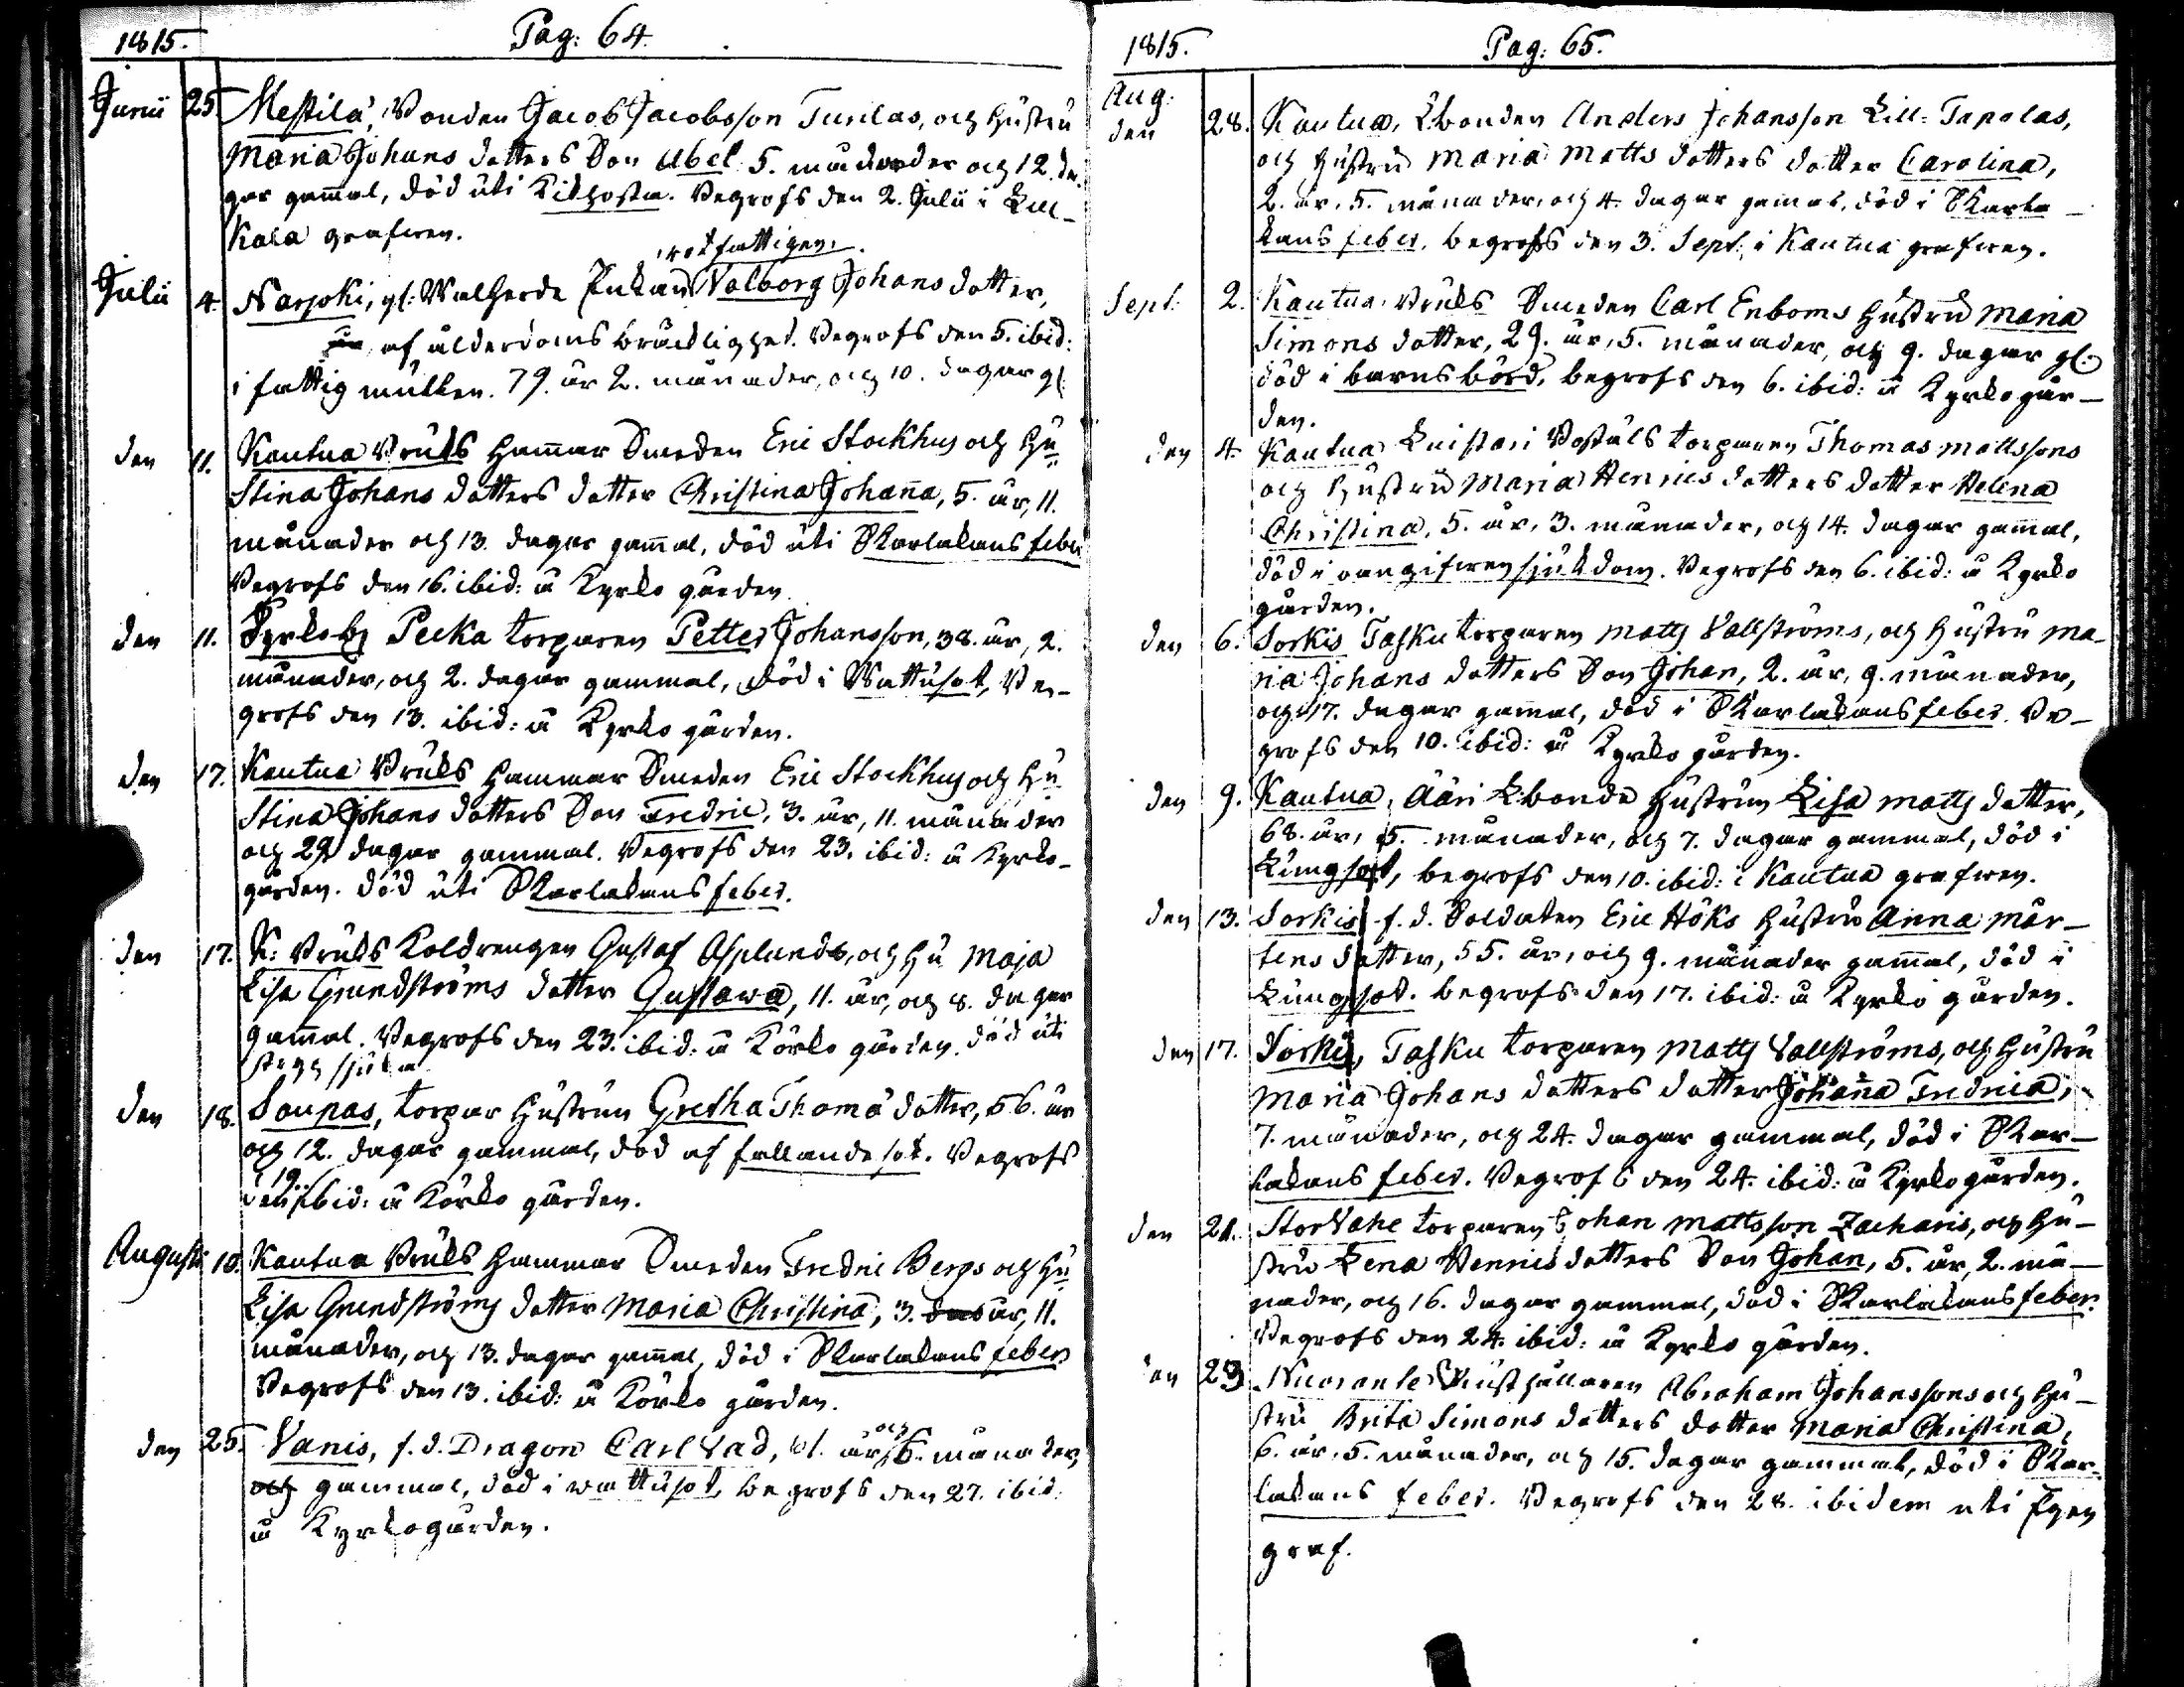 1815. Pag: 64.
Junii 25 Mestilä, Bonden Jacob Jacobsson Turilas, och hustru
Maria Johans dotters Son Abel 5. månader och 12. da-
gar gam̄al, död uti Kikhosta. Begrofs den 2. Julii i Lill-
Kala grafwen.
rotfattigen
Julii 4. Narjoki, gl: Wallherde Enkan Valborg Johans dotter,
af ålderdoms bräcklighet. Begrofs den 5. ibid:
i fattig mullen. 79. år 2. månader, och 10. dagar gl:
den 11. Kautua Bruks Ham̄ar Smeden Eric Stockhus och Hu
Stina Johans dotters dotter Christina Johan̄a, 5. år, 11.
månader och 13. dagar gam̄al, död uti Skarlakans feber
Begrofs den 16. ibid: å Kyrko gården
den 11. Kyrkoby Pecka torparen Petter Johansson, 38. år, 2.
månader, och 2. dagar gammal, död i Wattusot, Be-
grofs den 13. ibid: å Kyrko gården.
den 17. Kautua Bruks Hammar Smeden Eric Stockhus och Hu
Stina Johans dotters Son Fredric, 3. år, 11. månader
och 29 dagar gammal. Begrofs den 23. ibid: å Kyrko-
gården. död uti Skarlakans feber.
den 17. K: Bruks Koldrengen Gustaf Asplunds, och Hu Maja
Lisa Grundströms dotter Gustawa, 11. år, och 8. dagar
gam̄al. Begrofs den 23. ibid: å Körko gården. död uti
sjuka
den 18. Soupas, torpar Hustrun Gretha Thomä dotter, 56. år
och 12. dagar gammal, död af fallandesot. Begrofs
den 19. ibid: å Körko gården.
Augusti 10. Kautua Bruks Hammar Smeden Fredric Bergs och Hu
Lisa Grundströms dotter Maria Christina, 3. år, 11.
månader, och 13. dagar gam̄al, död i Skarlakans feber
Begrofs den 13. ibid: å Körko gården.
den 25. Vanis, f. d. Dragon Carl Vad, 61. år, och 6. månader,
och gammal, död i wattusot, begrofs den 27. ibid:
å Kyrkogården.
1815. Pag: 65.
Aug:
den 28. Kautua, Lbonden Anders Johansson Lill-Tapolas,
och hustru Maria Matts dotters dotter Carolina,
2. år, 5. månader, och 4. dagar gam̄al, död i Skarla-
kans feber, begrofs den 3. Sept: i Kautua grafwen.
Sept: 2. Kautua Bruks Smeden Carl Enboms Hustru Maria
Simons dotter, 29. år, 5. månader, och 9. dagar gl:
död i barnsbörd, begrofs den 6. ibid: å Kyrkogår-
den.
den 4. Kautua Luistari Boställs torparen Thomas Mattssons
och Hustru Maria Henrics dotters dotter Helena
Christina, 5. år, 3. månader, och 14. dagar gam̄al,
död i oangifwen sjukdom. Begrofs den 6. ibid: å Kyrko
gården.
den 6. Sorkis Tasku torparen Matts Vallströms, och Hustru Ma-
ria Johans dotters Son Johan, 2. år, 9. månader,
och 17. dagar gam̄al, död i Skarlakans feber. Be-
grofs den 10. ibid: å Kyrko gården.
den 9. Kautua, Ääri Lbonde Hustrun Lisa Matts dotter,
68. år, 5. månader, och 7. dagar gammal, död i
Lungsot, begrofs den 10. ibid: i Kautua grafwen.
den 13. Sorkis f. d. Soldaten Eric Höks Hustru Anna Mår-
tens dotter, 55. år, och 9. månader gam̄al, död i
Lungsot. begrofs den 17. ibid: å Kyrko gården.
den 17. Sorkis, Tasku torparen Matts Vallströms, och Hustru
Maria Johans dotters dotter Johan̄a Fredrica,
7. månader, och 24. dagar gammal, död i Skar-
lakans feber. Begrofs den 24. ibid: å Kyrkogården.
den 21. StorVahe torparen Johan Mattsson Zacharis, och Hu-
stru Lena Henricsdotters Son Johan, 5. år, 2. må-
nader, och 16. dagar gammal, död i Skarlakans feber.
Begrofs den 24. ibid: å Kyrko gården.
den 23 Rusthållaren Abraham Johanssons och Hu-
stru Brita Simons dotters dotter Maria Christina,
6. år, 5. månader, och 15. dagar gammal, död i Skar-
lakans feber. Begrofs den 28. ibidem uti Egen
graf.